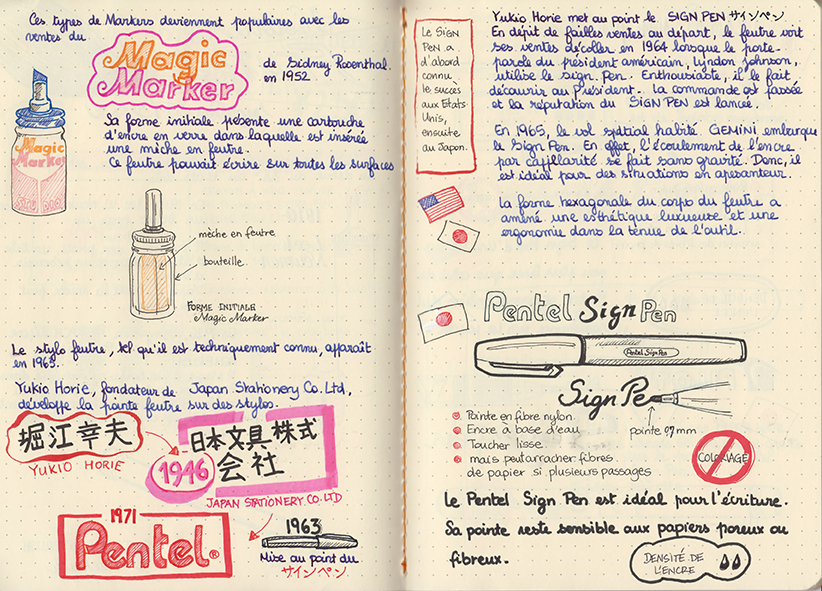 Ces types de Markers deviennent populaires avec les
ventes du
Magic
Marker
de Sidney Rosenthal.
en 1952
Magic
Marker
STUDIO
Sa forme initiale présente une cartouche
d'encre en verre dans laquelle est insérée
une mèche en feutre.
Ce feutre pouvait écrire sur toutes les surfaces
mèche en feutre
bouteille
FORME INITIALE
Magic Marker
Le stylo feutre, tel qu'il est techniquement connu, apparaît
en 1963.
Yukio Horie, fondateur de Japan Stationery Co. Ltd,
développe la pointe feutre sur des stylos.
堀江幸夫
YUKIO HORIE
1946
日本文具株式
会社
JAPAN STATIONERY.CO.LTD
1971
Pentel®
1963
Mise au point du
サインペン
Le SIGN
PEN a
d'abord
connu
le succès
aux Etats
Unis,
ensuite
au Japon.
Yukio Horie met au point le SIGN PEN サインペン
En dépit de failles ventes au départ, le feutre voit
ses ventes décoller en 1964 lorsque le porte-
parole du président américain, Lyndon Johnson,
utilise le sign. Pen. Enthousiaste, il le fait
découvrir au Président. La commande est passée
et la réputation du SIGN PEN est lancée.
En 1965, le vol spatial habité GEMINI embarque
le Sign Pen. En effet, l'écoulement de l'encre
par capillarité se fait sans gravité. Donc, il
est idéal pour des situations en apesanteur.
La forme hexagonale du corps du feutre a
amené une esthétique luxueuse et une
ergonomie dans la tenue de l'outil.
Pentel Sign Pen
Pentel Sign Pen
Sign Pe
Pointe en fibre nylon
Encre à base d'eau
Toucher lisse
mais peut arracher fibres
de papier si plusieurs passages
pointe 0,7 mm
COLORIAGE
Le Pentel Sign Pen est idéal pour l'écriture.
Sa pointe reste sensible aux papiers poreux ou
fibreux.
DENSITÉ DE
L'ENCRE